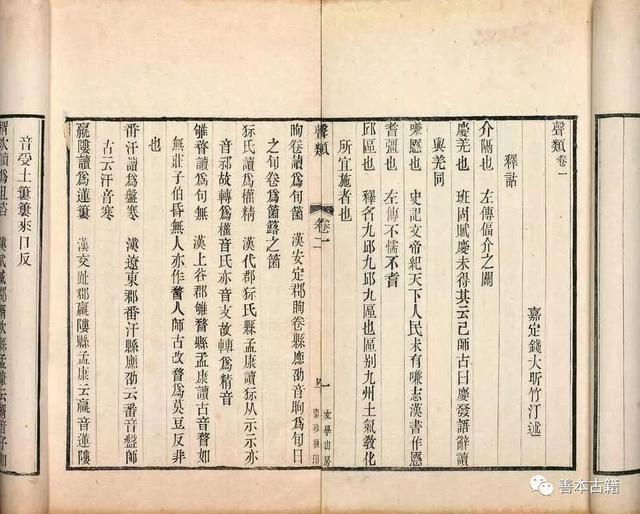 聲類卷一
嘉定錢大昕竹汀述
釋詁
介隔也　左傳偪介之關
慶羌也　班固賦慶未得其云已師古曰慶發語辭讀
與羌同
嗛慝也　史記文帝紀天下人民未有嗛志漢書作慝
耆彊也　左傳不懦不耆
邱區也　釋名九邱九區也區别九州土氣敎化
所宜施者也
聲類
卷一
一
文學山房
聚珍板印
昫卷讀爲旬箘　漢安定郡昫卷縣應劭音昫爲旬日
之旬卷爲箘簬之箘
狋氏讀爲權精　漢代郡狋氏縣孟康讀狋从示示亦
音祁故轉爲權音氏亦音支故轉爲精音
雊瞀讀爲句無　漢上谷郡雊瞀縣孟康讀古音瞀如
無莊子伯昏無人亦作瞀人師古改瞀爲莫豆反非
也
番汗讀爲盤寒　漢遼東郡番汗縣應劭云番音盤師
古云汗音寒
羸𨻻讀爲蓮簍　漢交趾郡羸𨻻縣孟康云羸音蓮𨻻
音受土簍簍來口反
善本古籍